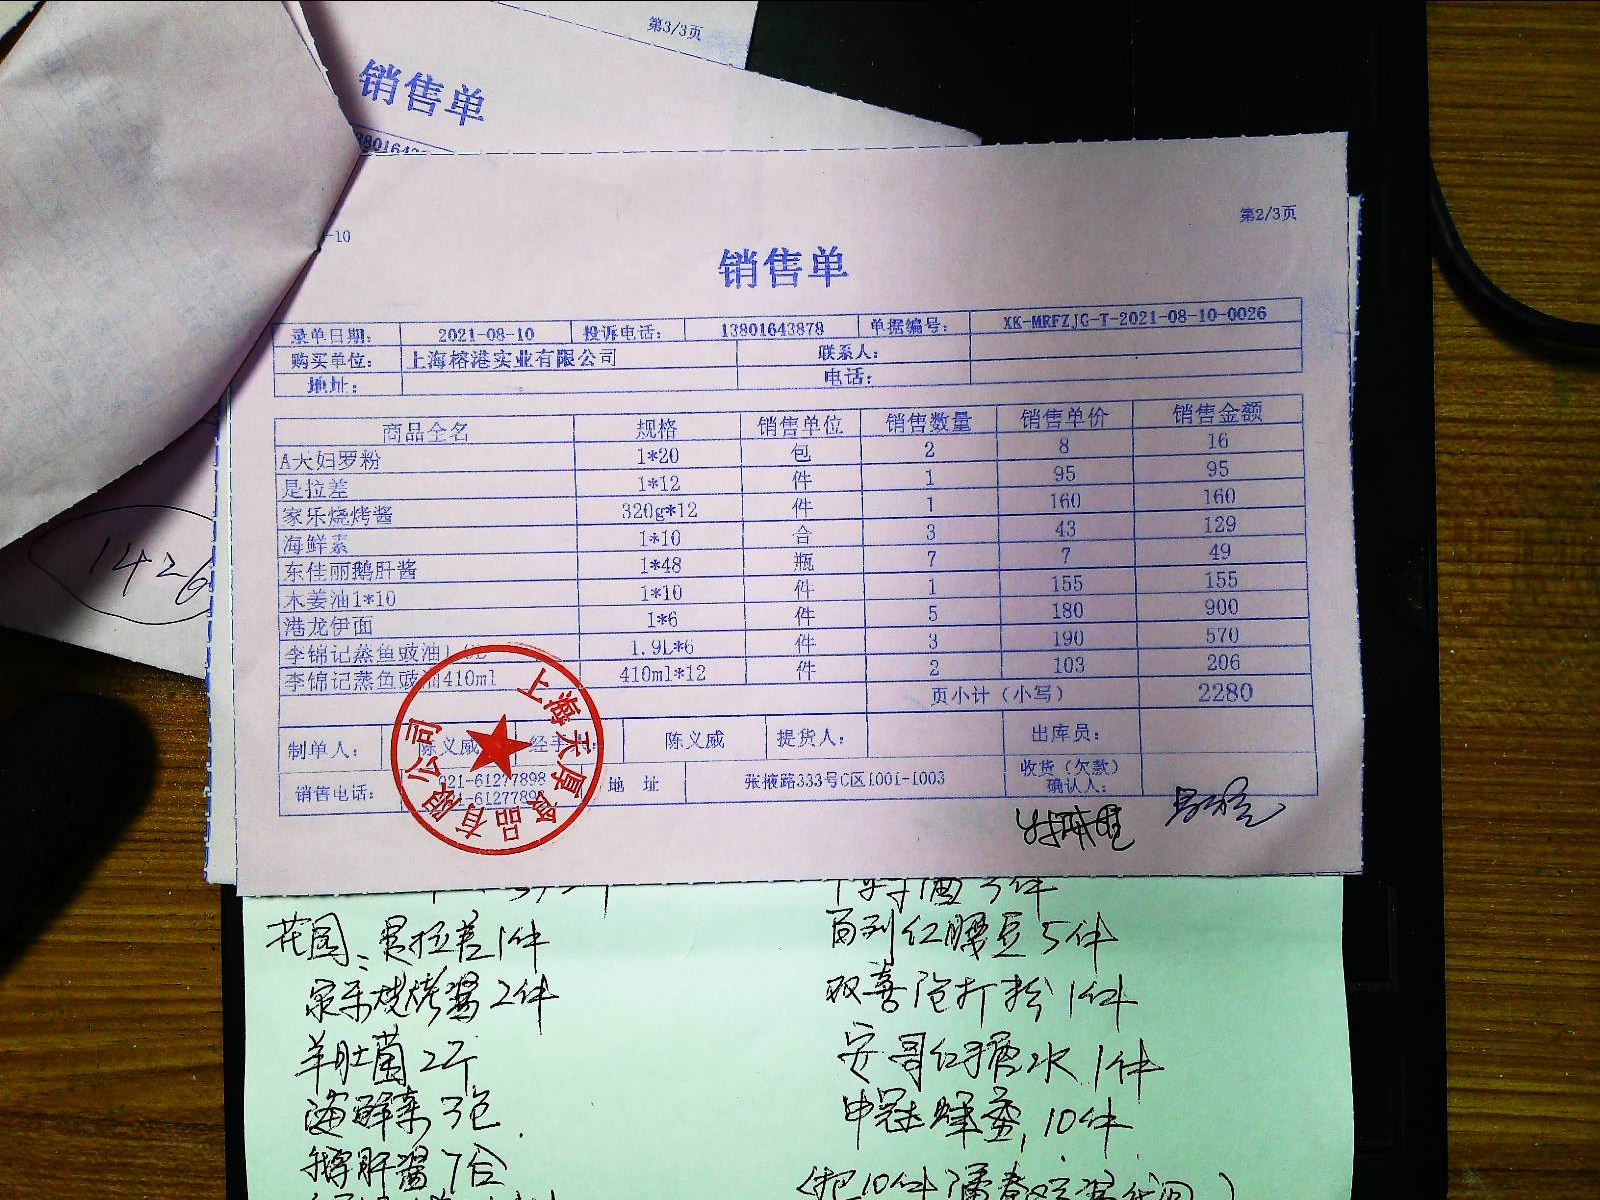 第3/3页
销售单
-10
第2/3页
销售单
录单日期： 2021-08-10 投诉电话： 13801643879 单据编号： XK-MRFZJG-T-2021-08-10-0026
购买单位： 上海榕港实业有限公司 联系人：
地址： 电话：
商品全名 规格 销售单位 销售数量 销售单价 销售金额
A大妇罗粉 1*20 包 2 8 16
是拉差 1*12 件 1 95 95
家乐烧烤酱 320g*12 件 1 160 160
海鲜素 1*10 合 3 43 129
东佳丽鹅肝酱 1*48 瓶 7 7 49
木姜油1*10 1*10 件 1 155 155
港龙伊面 1*6 件 5 180 900
李锦记蒸鱼豉油1. 1.9L*6 件 3 190 570
李锦记蒸鱼豉油410ml 410ml*12 件 2 103 206
页小计（小写） 2280
制单人： 陈义威 经手 陈义威 提货人： 出库员：
销售电话： 021-61277898 地 址 张掖路333号C区1001-1003 收货（欠款）确认人：
上海天厚食品有限公司
1426
花园、是拉差1件
家乐烧烤酱2件
羊肚菌2斤
海鲜素3包
鹅肝酱7合
红腰豆5件
双喜 粉1件
安哥红糖水1件
申冠蜂蜜, 10件